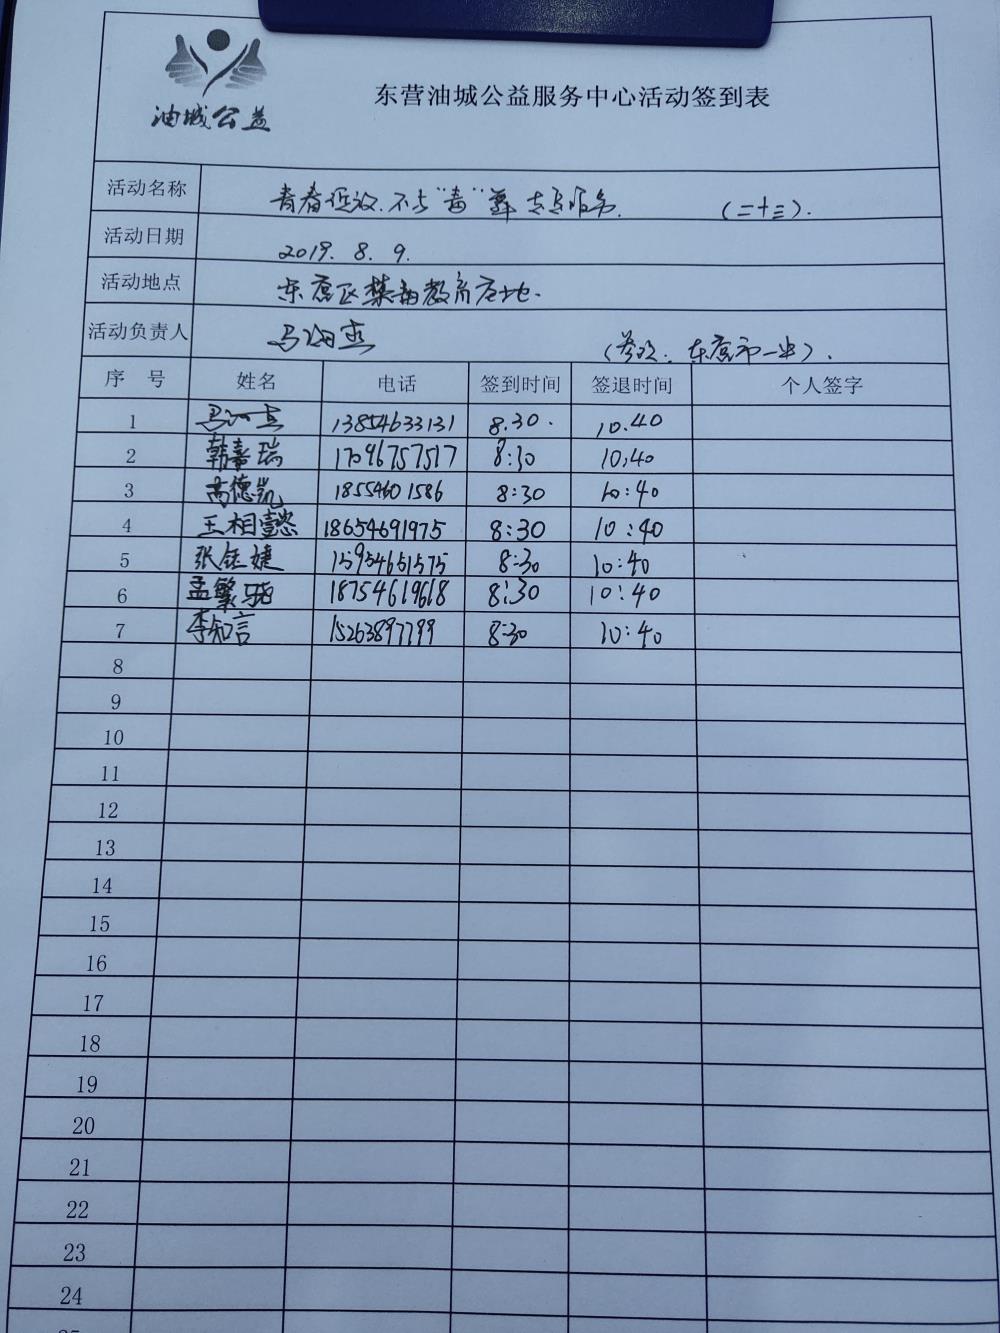 油城公益
东营油城公益服务中心活动签到表
活动名称 青春绽放.不与"毒"舞 志愿服务. (二十三).
活动日期 2019. 8. 9.
活动地点 东营区禁毒教育基地.
活动负责人 马海燕 (参观: 东营市一中).
序 号 姓名 电话 签到时间 签退时间 个人签字
1 13854633131 8.30. 10.40
2 韩嘉瑞 17096757517 8:30 10:40
3 高德凯 18554601586 8:30 10:40
4 王相懿 18654691975 8:30 10:40
5 张钰婕 15954651575 8:30 10:40
6 孟繁 18754619668 8:30 10:40
7 李知言 15263897799 8:30 10:40
8
9
10
11
12
13
14
15
16
17
18
19
20
21
22
23
24